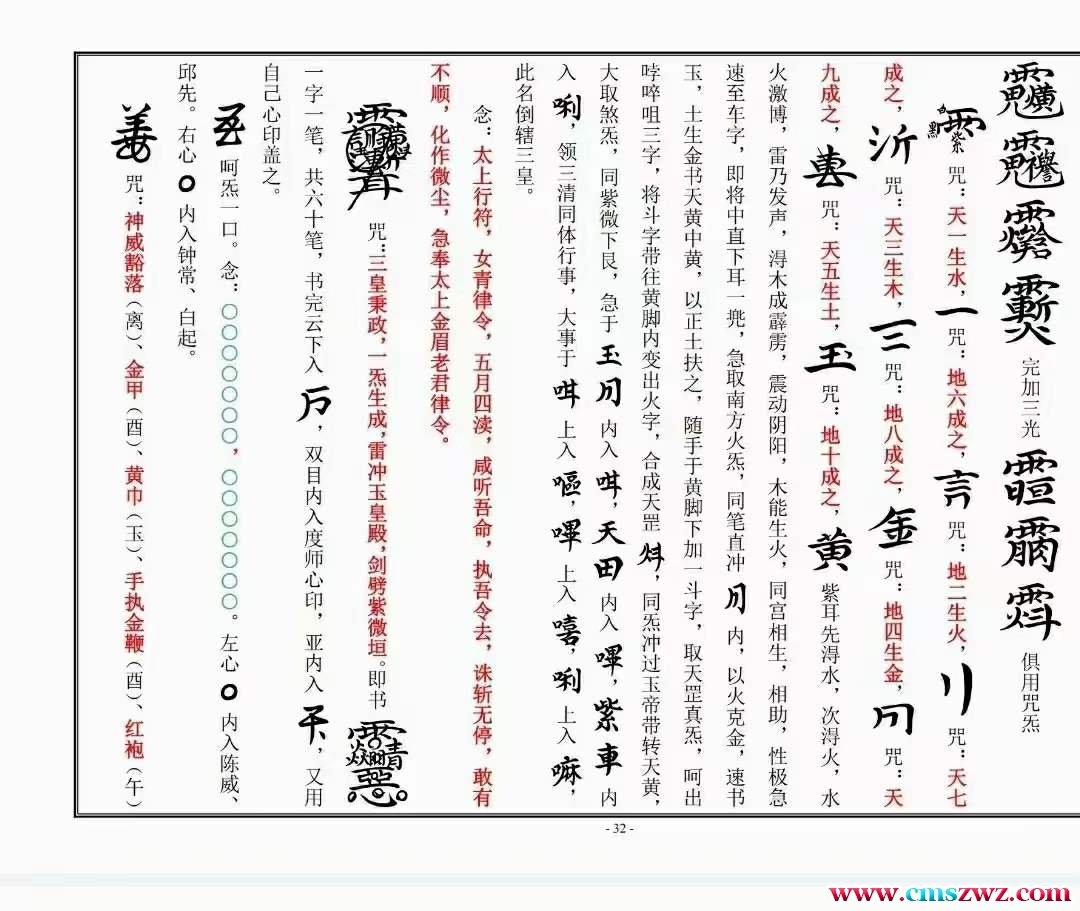 完加三光 俱用咒炁
咒：天一生水，一 咒：地六成之，言 咒：地二生火，咒：天七
成之，沂 咒：天三生木，三 咒：地八成之，金 咒：地四生金，咒：天
九成之，咒：天五生土，玉 咒：地十成之，黄 紫耳先淂水，次淂火，水
火激博，雷乃发声，淂木成霹雳，震动阴阳，木能生火，同宫相生，相助，性极急
速至车字，即将中直下耳一兠，急取南方火炁，同笔直冲 内，以火克金，速书
玉，土生金书天黄中黄，以正土扶之，随手于黄脚下加一斗字，取天罡真炁，呵出
哱啐咀三字，将斗字带往黄脚内变出火字，合成天罡 㶨，同炁冲过玉帝带转天黄，
大取煞炁，同紫微下艮，急于 玉 内入 㖤，天田 内入 嗶，紫車 内
入 唎，领三清同体行事，大事于 㖤 上入 嘔，嗶 上入 嘻，唎 上入 嘛，
此名倒辖三皇。
念：太上行符，女青律令，五月四渎，咸听吾命，执吾令去，诛斩无停，敢有
不顺，化作微尘，急奉太上金眉老君律令。
咒：三皇秉政，一炁生成，雷冲玉皇殿，剑劈紫微垣。即书
一字一笔，共六十笔，书完云下入 ，双目内入度师心印，亚内入 ，又用
自己心印盖之。
呵炁一口。念：〇〇〇〇〇〇〇，〇〇〇〇〇〇〇。左心〇内入陈威、
邱先。右心〇内入钟常、白起。
咒：神威豁落（离）、金甲（酉）、黄巾（玉）、手执金鞭（酉）、红袍（午）
- 32 -
www.cmszwz.com